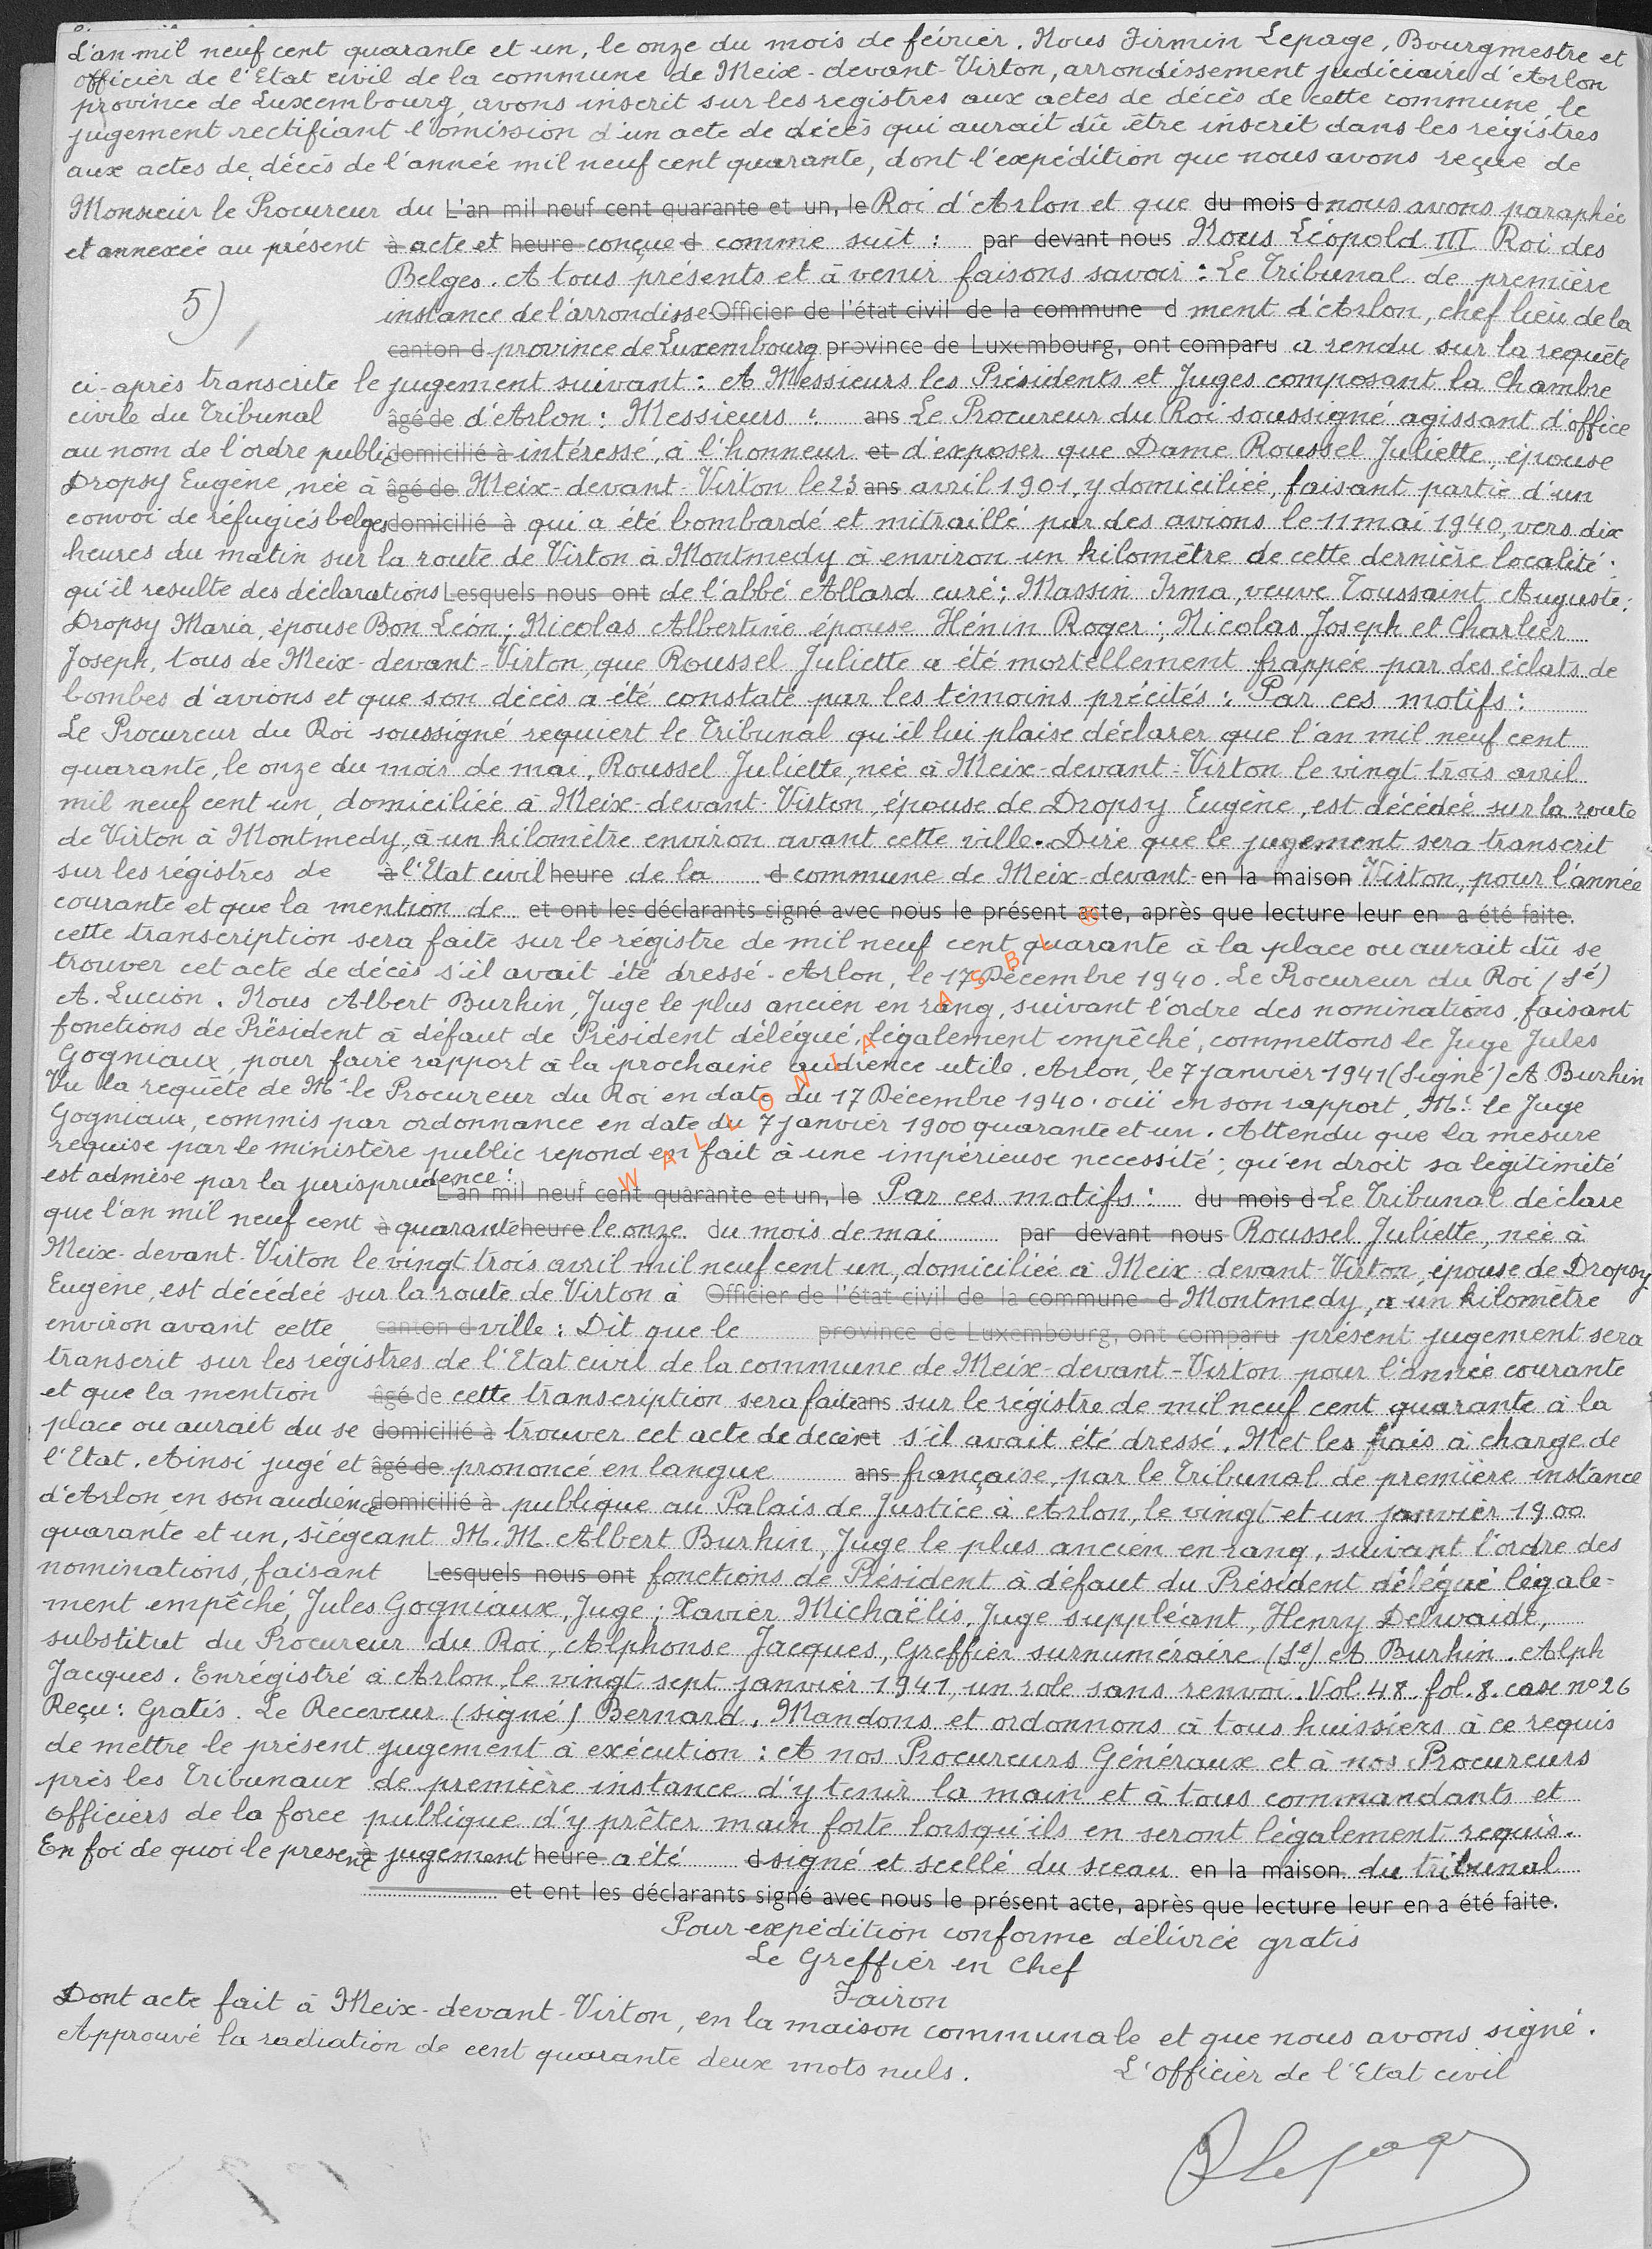 L'an mil neuf cent quarante et un, le onze du mois de février. Nous Firmin Lepage, Bourgmestre et
officier de l'Etat civil de la commune de Meix-devant-Virton, arrondissement judiciaire d'Arlon
province de Luxembourg, avons inscrit sur les registres aux actes de décès de cette commune, le
jugement rectifiant l'omission d'un acte de décès qui aurait dû être inscrit dans les régistres
aux actes de décès de l'année mil neuf cent quarante, dont l'expédition que nous avons reçue de
Monsieur le Procureur du L'an mil neuf cent quarante et un, le Roi d'Arlon et que du mois d nous avons paraphée
et annexée au présent à acte et heure conçue d comme suit : par devant nous Nous Léopold III Roi des
Belges. A tous présents et à venir faisons savoir : Le Tribunal de première
5)
instance de l'arrondisse Officier de l'état civil de la commune d ment d'Arlon, chef lieu de la
canton d province de Luxembourg province de Luxembourg, ont comparu a rendu sur la requête
ci-après transcrite le jugement suivant : A Messieurs les Présidents et Juges composant la Chambre
civile du Tribunal âgé de d'Arlon : Messieurs : ans Le Procureur du Roi soussigné agissant d'office
au nom de l'ordre public domicilié à intéressé, à l'honneur et d'exposer que Dame Roussel Juliette, épouse
Dropsy Eugène, née à âgé de Meix-devant-Virton le 23 ans avril 1901, y domiciliée, faisant partie d'un
convoi de réfugiés belges domicilié à qui a été bombardé et mitraillé par des avions le 11 mai 1940, vers dix
heures du matin sur la route de Virton à Montmedy à environ un kilomètre de cette dernière localité ;
qu'il resulte des déclarations Lesquels nous ont de l'abbé Allard curé ; Massin Irma, veuve Toussaint Auguste ;
Dropsy Maria, épouse Bon Léon ; Nicolas Albertine épouse Hénin Roger ; Nicolas Joseph et Charlier
Joseph, tous de Meix-devant-Virton, que Roussel Juliette a été mortellement frappée par des éclats de
bombes d'avions et que son décès a été constaté par les témoins précités : Par ces motifs :
Le Procureur du Roi soussigné requiert le Tribunal qu'il lui plaise déclarer que l'an mil neuf cent
quarante, le onze du mois de mai, Roussel Juliette, née à Meix-devant-Virton le vingt trois avril
mil neuf cent un, domiciliée à Meix-devant-Virton, épouse de Dropsy Eugène, est décédée sur la route
de Virton à Montmedy, à un kilomètre environ avant cette ville. Dire que le jugement sera transcrit
sur les régistres de à l'Etat civil heure de la d commune de Meix-devant- en la maison Virton, pour l'année
courante et que la mention de et ont les déclarants signé avec nous le présent acte, après que lecture leur en a été faite.
cette transcription sera faite sur le régistre de mil neuf cent quarante à la place ou aurait dû se
trouver cet acte de décès s'il avait été dressé - Arlon, le 17 Décembre 1940. Le Procureur du Roi (sé)
A. Lucion. Nous Albert Burhin, Juge le plus ancien en rang, suivant l'ordre des nominations, faisant
fonctions de Président à défaut de Président délégué, légalement empêché, commettons le Juge Jules
Gogniaux, pour faire rapport à la prochaine audience utile. Arlon, le 7 janvier 1941 (Signé) A Burhin
Vu la requête de Mr le Procureur du Roi en date du 17 Décembre 1940. ouï en son rapport, Mr le Juge
Gogniaux, commis par ordonnance en date du 7 janvier 1900 quarante et un. Attendu que la mesure
requise par le ministère public repond en fait à une impérieuse necessité ; qu'en droit sa légitimité
est admise par la jurisprudence : L'an mil neuf cent quarante et un, le Par ces motifs : du mois d Le Tribunal déclare
que l'an mil neuf cent à quarante heure le onze du mois de mai par devant nous Roussel Juliette, née à
Meix-devant-Virton le vingt trois avril mil neuf cent un, domiciliée à Meix-devant-Virton, épouse de Dropsy
Eugène, est décédée sur la route de Virton à Officier de l'état civil de la commune d Montmedy, à un kilomètre
environ avant cette canton d ville : Dit que le province de Luxembourg, ont comparu présent jugement sera
transcrit sur les régistres de l'Etat civil de la commune de Meix-devant-Virton pour l'année courante
et que la mention âgé de cette transcription sera faite ans sur le régistre de mil neuf cent quarante à la
place ou aurait du se domicilié à trouver cet acte de decès et s'il avait été dressé. Met les frais à charge de
l'Etat. Ainsi jugé et âgé de prononcé en langue ans française, par le Tribunal de première instance
d'Arlon, en son audience domicilié à publique au Palais de Justice à Arlon, le vingt et un janvier 1900
quarante et un, siégeant M. M. Albert Burhin, Juge le plus ancien en rang, suivant l'ordre des
nominations, faisant Lesquels nous ont fonctions de Président à défaut du Président délégué légale-
ment empêché, Jules Gogniaux, Juge ; Xavier Michaëlis, Juge suppléant, Henry Delwaide,
substitut du Procureur du Roi, Alphonse Jacques, Greffier surnuméraire (Sé) A Burhin. Alph
Jacques. Enrégistré à Arlon, le vingt sept janvier 1941, un role sans renvoi. Vol 48. fol. 8. case no 26
Reçu : Gratis. Le Receveur (signé) Bernard. Mandons et ordonnons à tous huissiers à ce requis
de mettre le présent jugement à exécution : A nos Procureurs Généraux et à nos Procureurs
près les Tribunaux de première instance d'y tenir la main et à tous commandants et
officiers de la force publique d'y prêter main forte lorsqu'ils en seront légalement requis.
En foi de quoi le présent à jugement heure a été d signé et scellé du sceau en la maison du tribunal
et ont les déclarants signé avec nous le présent acte, après que lecture leur en a été faite.
Pour expédition conforme délivrée gratis
Le Greffier en Chef
Fairon
Dont acte fait à Meix-devant-Virton, en la maison communale et que nous avons signé.
Approuvé la radiation de cent quarante deux mots nuls.
L'officier de l'Etat civil
Flepage
WALLONIA ASBL ©